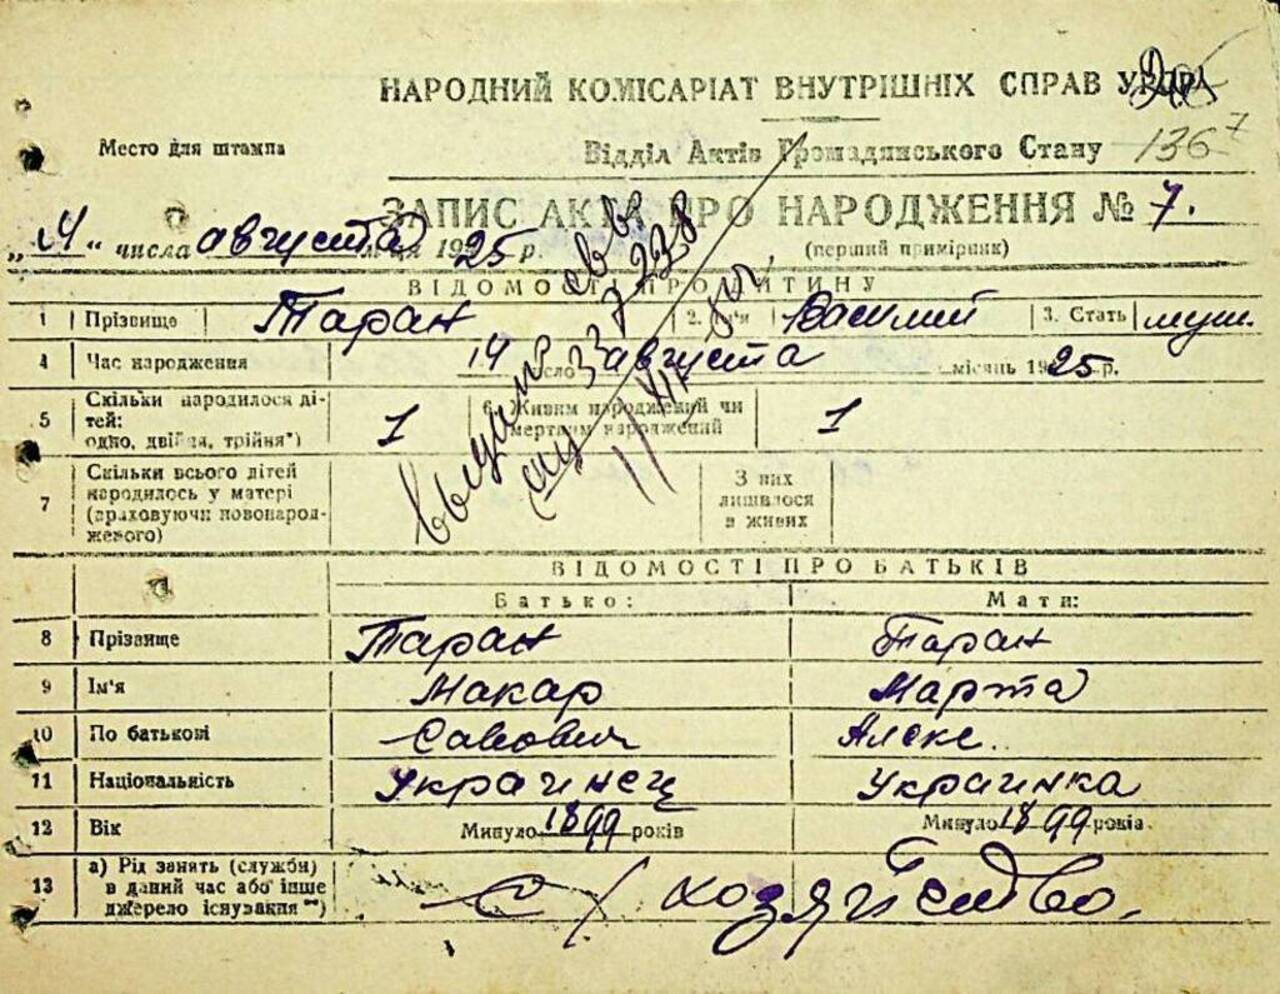 НАРОДНИЙ КОМІСАРІАТ ВНУТРІШНІХ СПРАВ УРСР
Место для штампа
Відділ Актів Громадянського Стану 136 7
ЗАПИС АКТА ПРО НАРОДЖЕННЯ № 7.
„14“ числа августа м-ця 1925 р. (перший примірник)
ВІДОМОСТІ ПРО ДИТИНУ
1 Прізвище Таран 2. Ім'я Василий 3. Стать муж.
4 Час народження 14 число августа місяць 1925 р.
5 Скільки народилося ді-
тей:
одно, двійня, трійня*) 1
6. Живим народжений чи
мертвим народжений 1
7 Скільки всього дітей
народилось у матері
(враховуючи новонарод-
женого)
З них
лишилося
в живих
ВІДОМОСТІ ПРО БАТЬКІВ
Батько: Мати:
8 Прізвище Таран Таран
9 Ім'я Макар Марта
10 По батькові Савович Алекс..
11 Національність Украинец Украинка
12 Вік Минуло 1899 років Минуло 1899 років
13 а) Рід занять (служби)
в даний час або інше
джерело існування**) С/хозяйство.